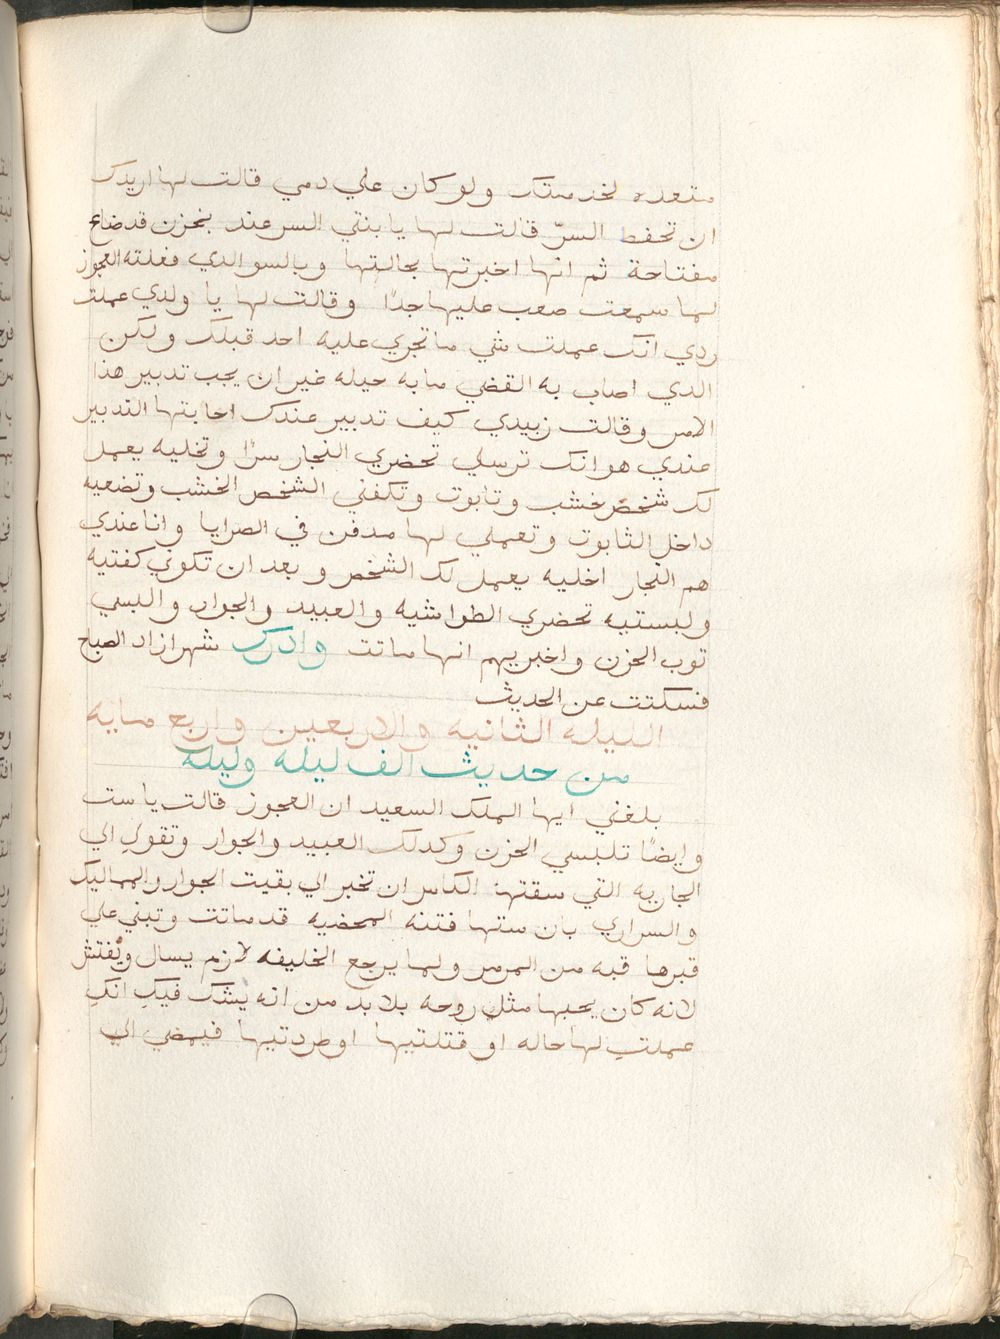 متعده لخدمتك ولو كان علي دمي قالت لها اريدك
ان تحفط السرّ قالت لها يا بنتي السر عند بخزن قد ضاع
مفتاحة ثم انها اخبرتها بحالتها وبالسو الدي فعلته العجوز
لما سمعت صعب عليها جدًا وقالت لها يا ولدي عملت
ردي انك عملت شي ما تجري عليه احد قبلك ولكن
الدي اصاب به القضي ما به حيله غير ان يجب تدبير هذا
الامر وقالت زبيدي كيف تدبير عندك اجابتها التدبير
عندي هو انك ترسلي تحضري النجار سرًا وتخليه يعمل
لك شخص خشب وتابوت وتكفني الشخص الخشب وتضعيه
داخل الثابوت وتعملي لها مدفن في الصرايا وانا عندي
هم النجار اخليه يعمل لك الشخص وبعد ان تكوني كفتيه
ولبستيه تحضري الطواشيه والعبيد والجوار والبسي
توب الحزن واخبريهم انها ماتت وادرك شهرازاد الصباح
فسكتت عن الحديث
الليله الثانيه والاربعين واربع مايه
من حديث الف ليله وليله
بلغني ايها الملك السعيد ان العجوز قالت يا ست
وايضًا تلبسي الحزن وكدلك العبيد والجوار وتقولي الي
الجاريه التي سقتها الكاس ان تخبر الي بقيت الجوار والمماليك
والسراري بان ستها فتنه المحضيه قد ماتت وتبني علي
قبرها قبه من المرمر ولما يرجع الخليفه لازم يسال ويُفتش
لانه كان يحبها مثل روحه بلا بد من انه يشك فيكِ انكِ
عملتِ لها حاله او قتلتيها او طردتيها فيمضي الي